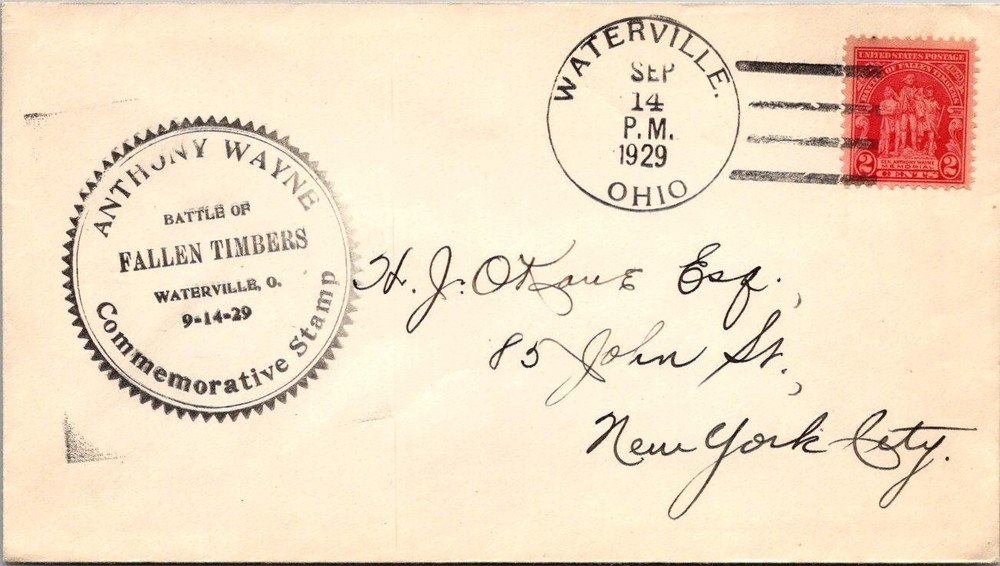 WATERVILLE.
SEP
14
P.M.
1929
OHIO
UNITED STATES POSTAGE
BATTLE OF FALLEN TIMBERS
GEN. ANTHONY WAYNE
MEMORIAL
2 CENTS 2
ANTHONY WAYNE
BATTLE OF
FALLEN TIMBERS
WATERVILLE, O.
9-14-29
Commemorative Stamp
H. J. O'Kane Esq.,
85 John St.,
New York City.